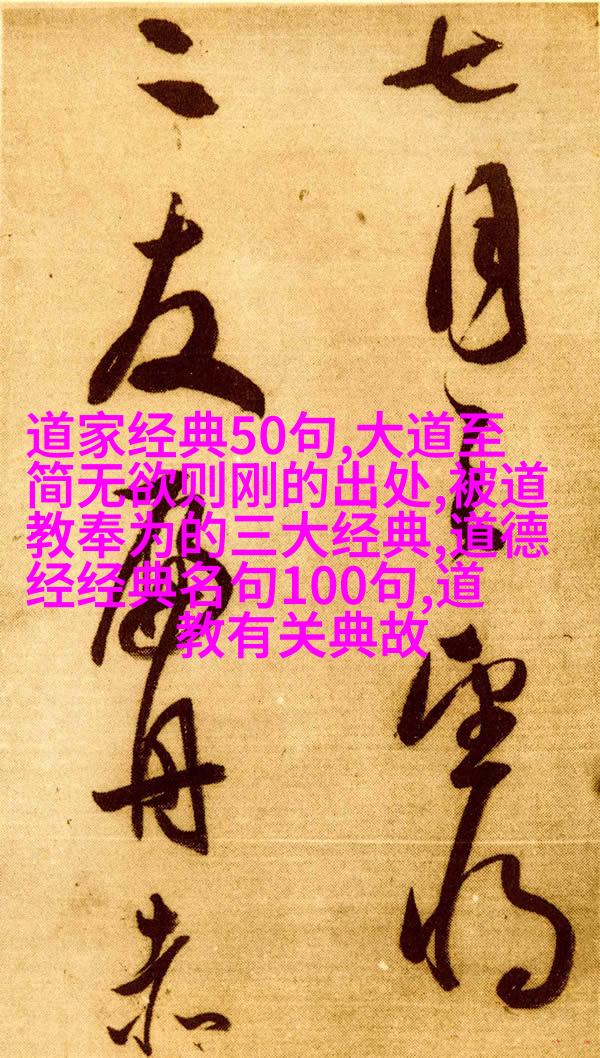 七月望将
二友舟赤
道家经典50句,大道至
简无欲则刚的出处,被道
教奉为的三大经典,道德
经经典名句100句,道
教有关典故